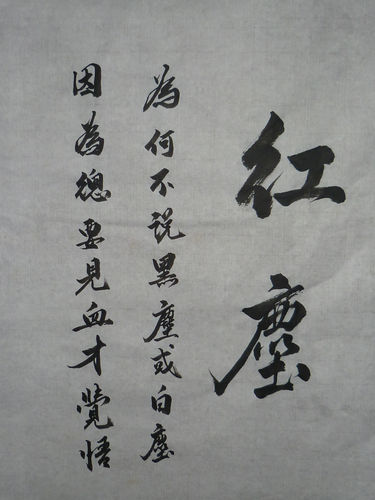 红塵
為何不说黑塵或白塵
因為總要見血才覺悟